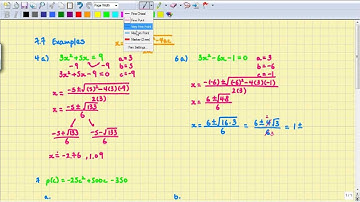 Page Width
Fine Chisel
Fine Point
Medium Point
Marker (Clear)
Pen Settings...
7.7 Examples
4 a) 3x² + 5x = 9 a = 3
-9 -9 b = 5
3x² + 5x - 9 = 0 c = -9
x = -5 ± √(5)² - 4(3)(-9)
2(3)
x = -5 ± √133
6
-5 + √133 -5 - √133
6 6
x = -2.76, 1.09
6 a) 3x² - 6x - 1 = 0 a = 3
b = -6
c = -1
x = -(-6) ± √(-6)² - 4(3)(-1)
2(3)
x = 6 ± √48
6
x = 6 ± √16·3 = 6 ± 4√3 = 1 ±
6 6
7 p(c) = -25c² + 500c - 350
a. b.